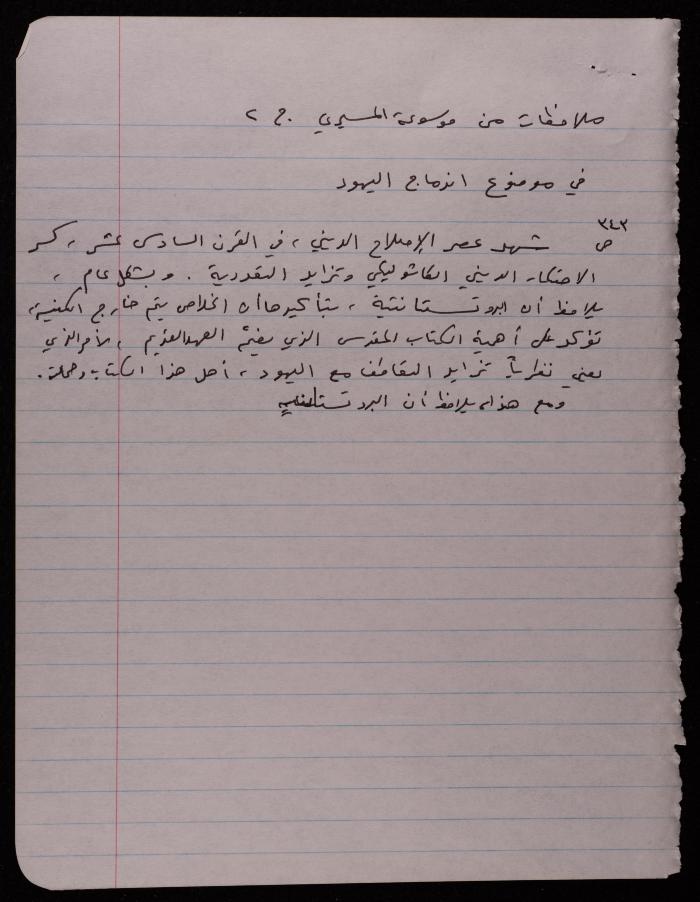 ملاحظات من موسوعة المسيري . ج ٢
في موضوع اندماج اليهود
ص ٣٤٣ شهد عصر الإصلاح الديني ، في القرن السادس عشر ، كسر
الاحتكار الديني الكاثوليكي وتزايد التعددية . وبشكل عام ،
يلاحظ أن البروتستانتية ، بتأكيدها أن الخلاص يتم خارج الكنيسة ،
تؤكد على أهمية الكتاب المقدس الذي يضم العهد القديم ، الأمر الذي
يعني نظرياً تزايد التعاطف مع اليهود ، أهل هذا الكتاب وحملته .
ومع هذا ، يلاحظ أن البروتستانتية